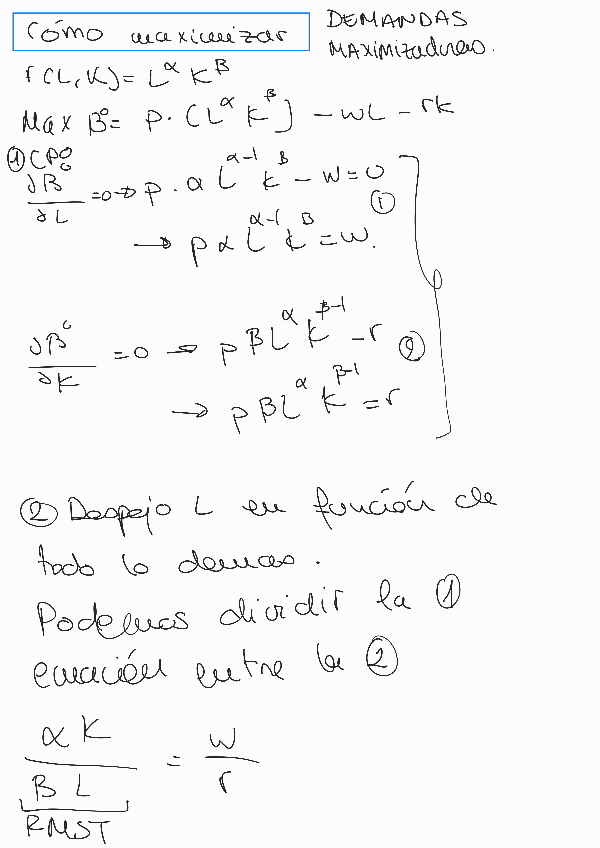 Cómo maximizar
DEMANDAS
MAXIMizadoras.
f(L,K)= L^α K^β
Max Bº= P·(L^α K^β) - wL - rk
① CPO:
∂Bº/∂L =0 → P·α L^(α-1) K^β - w=0 ①
→ p α L^(α-1) K^β = w.
∂Bº/∂K =0 → p β L^α K^(β-1) - r ②
→ p β L^α K^(β-1) = r
② Despejo L en función de
todo lo demas.
Podemos dividir la ①
ecuación entre la ②
αK/βL = w/r
RMST